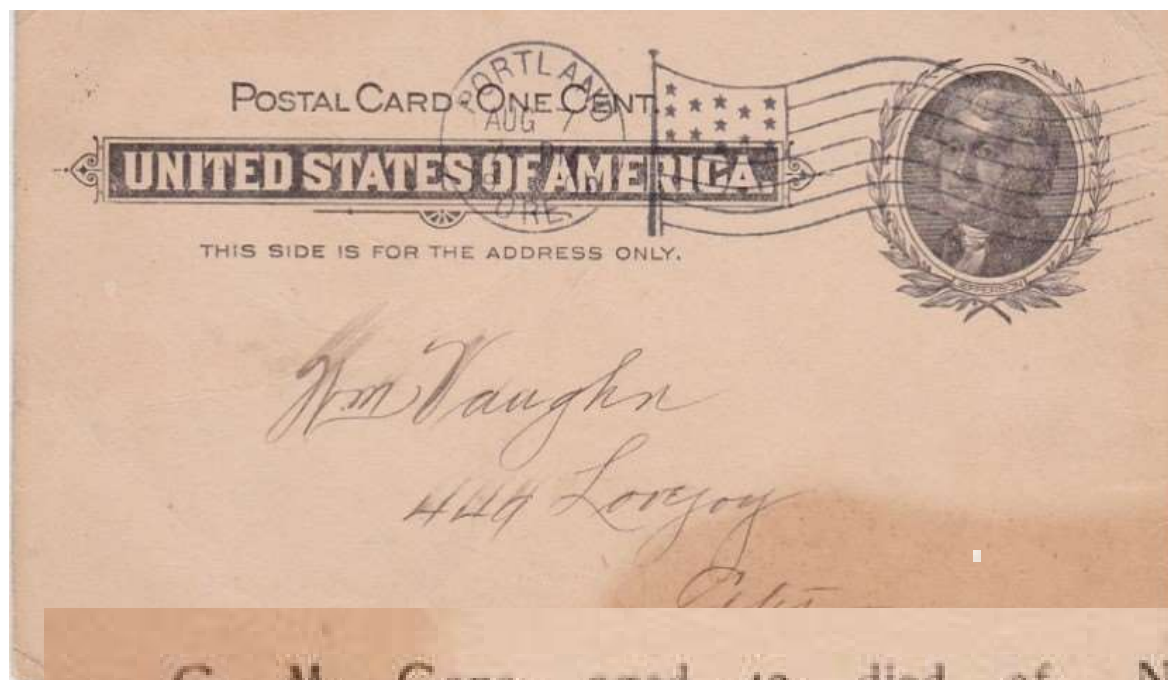 POSTAL CARD - ONE CENT.
PORTLAND
AUG 7
ORE.
UNITED STATES OF AMERICA
THIS SIDE IS FOR THE ADDRESS ONLY.
JEFFERSON
Wm Vaughn
449 Lovejoy
City